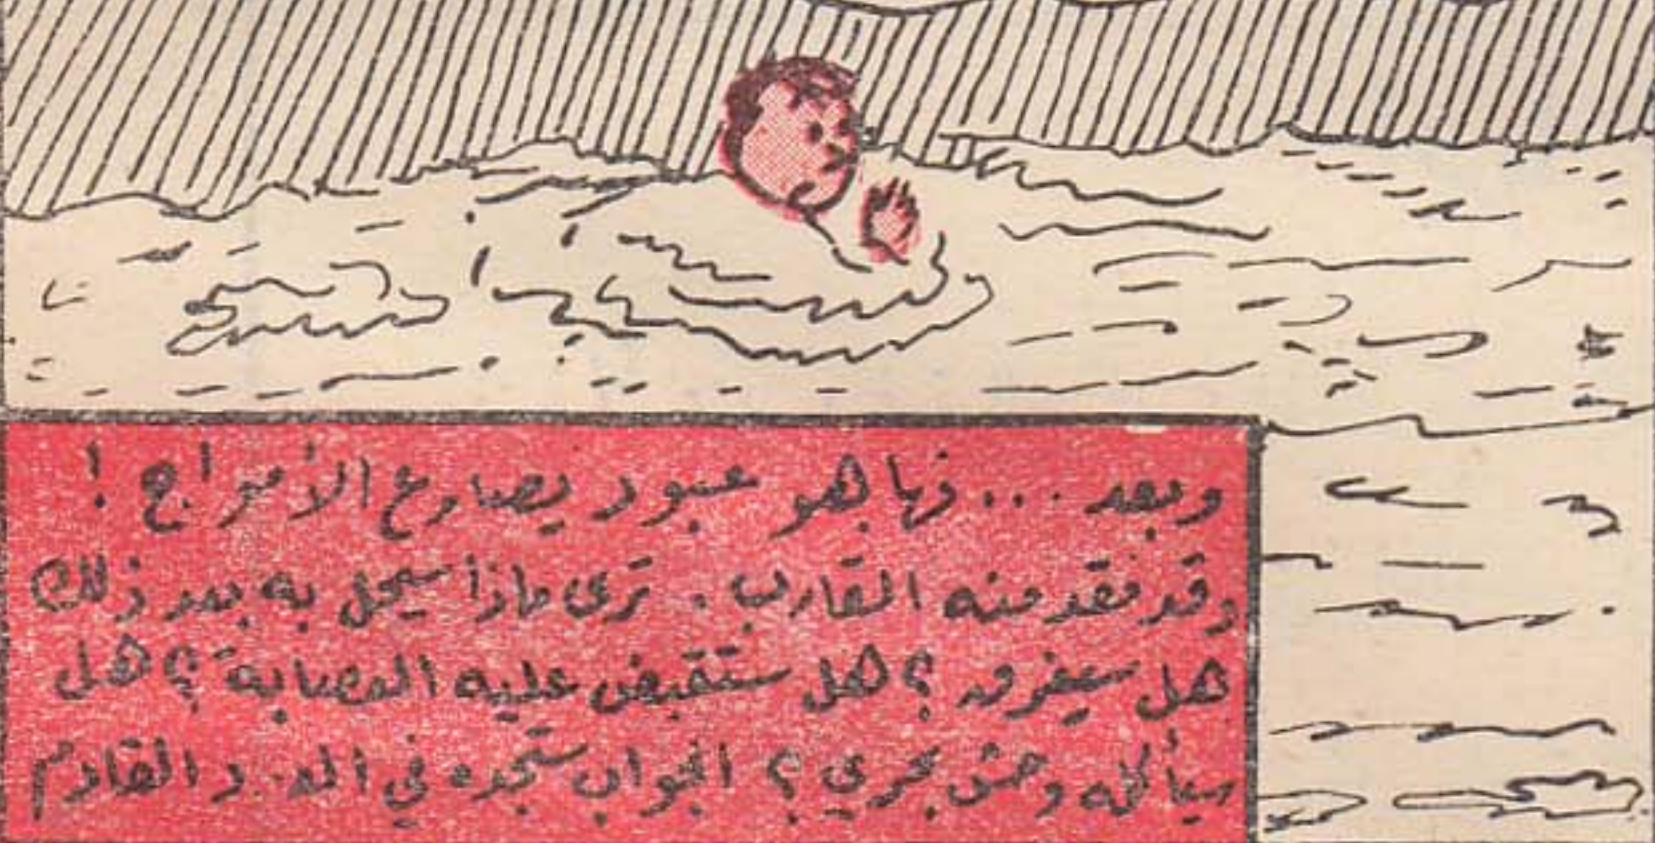 وبعد ... فها هو عبود يصارع الأمواج !
وقد فقد منه القارب . ترى ماذا سيحل به بعد ذلك
هل سيغرق ؟ هل ستقبض عليه العصابة ؟ هل
سيأكله وحش بحري ؟ الجواب ستجده في القادم